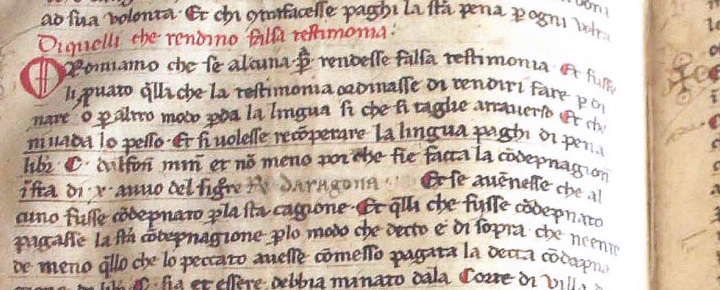 ad sua volonta. Et chi 9trafacesse paghi la sta pena p ogni volta
Di quelli che rendino falsa testimonia.
Oponiamo che se alcuna p̃ rendesse falsa testimonia Et fusse
li puato q̃lli che la testimonia ordinasse di rendiri fare p di
nare o p altro modo pda la lingua si che si taglie atrauerso Et che
ni uada lo pesso. Et si uolesse recõperare la lingua paghi di pena
libr. C. dalfon miñ et nõ meno poi che fie facta la cõdepnagion
ista di .x. anno del sigre Re daragona Et se auẽnesse che al
cuno fusse cõdepnato p la sta cagione. Et q̃lli che fusse cõdepnato
pagasse la sta cõdepnagione p lo modo che decto e di sopra che neente
de meno q̃llo che lo peccato auesse cõmesso pagata la decta cõdapna
C. sia et essere debbia minato dala Corte di Villa